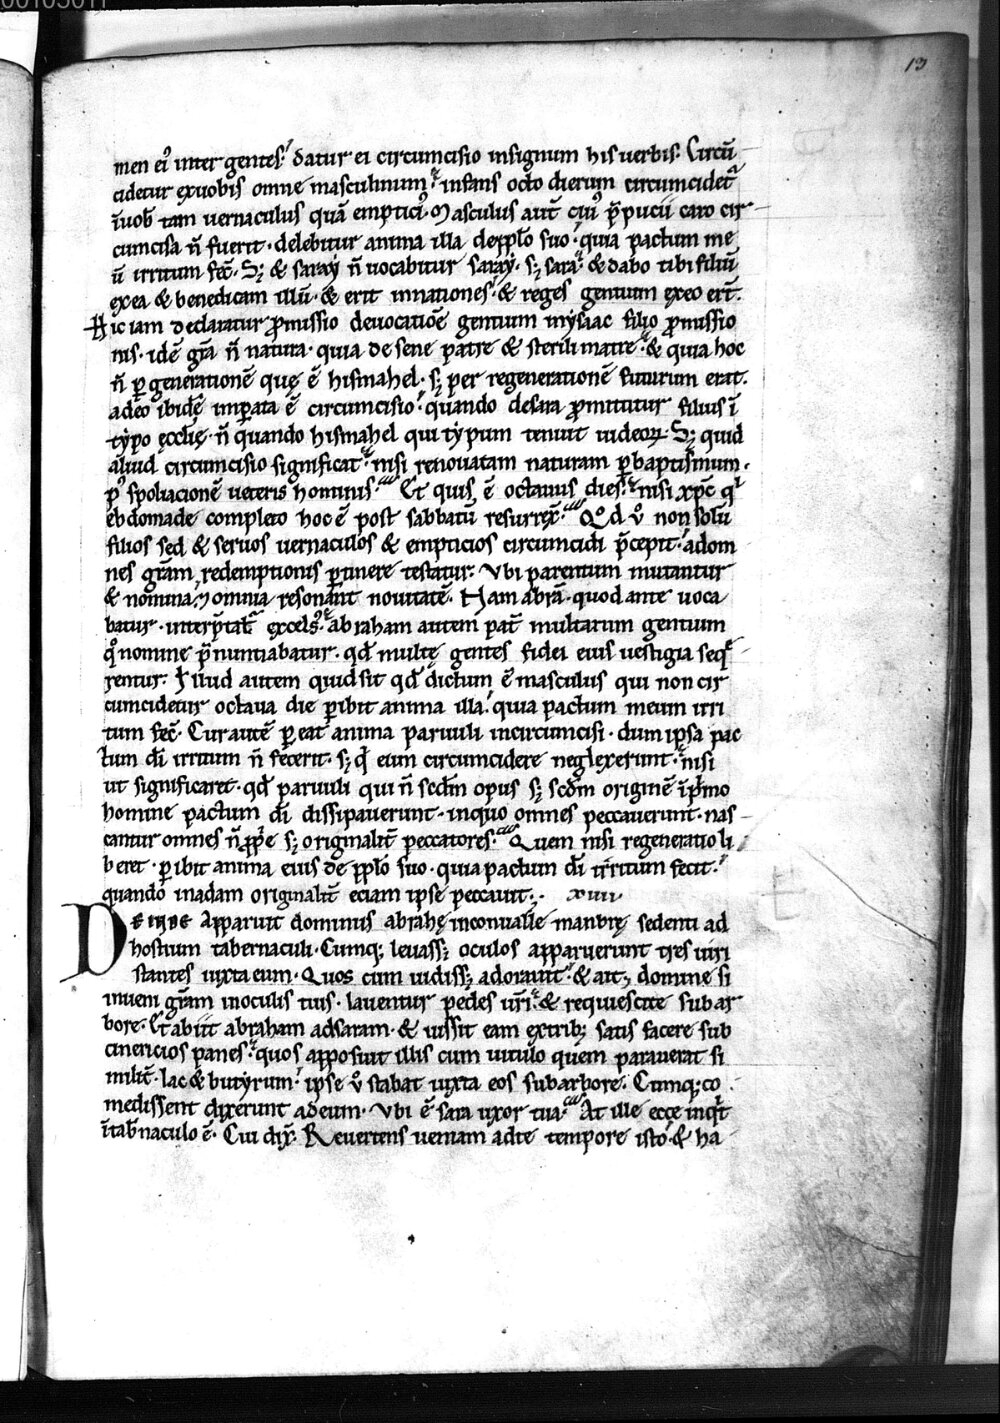 13
men ei᾿ inter gentes. datur ei circumcisio insignum his uerbis. Circū
cidetur exuobis omne masculinum. infans octo dierum circumcidet᷑
ī uob᷑ tam uernaculus quā empticiꝰ. Masculus aut̄ ciuꝰ p̄pucii caro cir
cumcisa n̄ fuerit. delebitur anima illa depp̄lo suo. quia pactum me
ū irritum fec̄. Sꝫ & saraẏ n̄ uocabitur saraẏ. sꝫ sara. & dabo tibi filiū
exea & benedicam illū. & erit innationes. & reges gentium exeo ert̄.
Hic iam declaratur ꝓmissio deuocatiōe gentium inẏsaac filio ꝓmissio
nis. idē gr̄a n̄ natura. quia de sene patre & sterili matre. & quia hoc
n̄ ꝑ generationē que ē hismahel. sꝫ per regenerationē futurum erat.
adeo ibidē imperata ē circumcisio. quando desara ꝓmittitur filius ī
tẏpo ęccl̄ię. n̄ quando hismahel qui tẏpum tenuit iudeoꝝ. Sꝫ quid
aliud circumcisio significat. nisi renouatam naturam ꝑ baptismum.
pꝰ spoliacionē ueteris hominis. Et quis ē octauus dies. nisi xp̄c qͥ
ebdomade completo hoc ē post sabbatū resurrex̄. Qͦd ůͦ non solū
filios sed & seruos uernaculos & empticios circumcidi p̄cepit. adom
nes gr̄am redemptionis ꝑtinere testatur. Vbi parentum mutantur
& nomina, omnia resonant nouitatē. Nam abrā. quod ante uoca
batur. interp̄tat᷑ excelsꝰ. abraham autem pat̄ multarum gentium
qͦ nomine p̄nuntiabatur. qd̄ multę gentes fidei eius uestigia seq̄
rentur. Illud autem quid sit qd̄ dictum ē masculus qui non cir
cumcidetur octaua die ꝑibit anima illa. quia pactum meum irri
tum fec̄. Cur autē ꝑeat anima paruuli incircumcisi. dum ipsa pac
tum dī irritum n̄ fecerit. sꝫ qͥ eum circumcidere neglexerunt. nisi
ut significaret. qd̄ paruuli qui n̄ scd̄m opus sꝫ scd̄m originē ī pͥmo
homine pactum dī dissipauerunt. inquo omnes peccauerunt. nas
cantur omnes n̄ ꝓpͥe sꝫ originalit̄ peccatores. Quem nisi regeneratio li
beret. ꝑibit anima eius de pp̄lo suo. quia pactum dī irritum fecit.
quando inadam originalit̄ eciam ipse peccauit. xiiii
DEINDE apparuit dominus abrahę inconualle manbrę sedenti ad
hostium tabernaculi. Cumqꝫ leuassꝫ oculos apparuerunt tres uiri
stantes iuxta eum. Quos cum uidissꝫ adorauit. & ait, domine si
inueni gr̄am inoculis tuis. lauentur pedes ur̄i. & requiescite sub ar
bore. Et abiit abraham adsaram. & iussit eam extribꝫ satis facere sub
cinericios panes. quos apposuit illis cum uitulo quem parauerat si
milit̄. lac & butẏrum. ipse ůͦ stabat iuxta eos sub arbore. Cumqꝫ co
medissent dixerunt adeum. Vbi ē sara uxor tua. At ille ecce inqͥt
ī tab̄naculo ē. Cui dix̄. Reuertens ueniam adte tempore isto. & ha